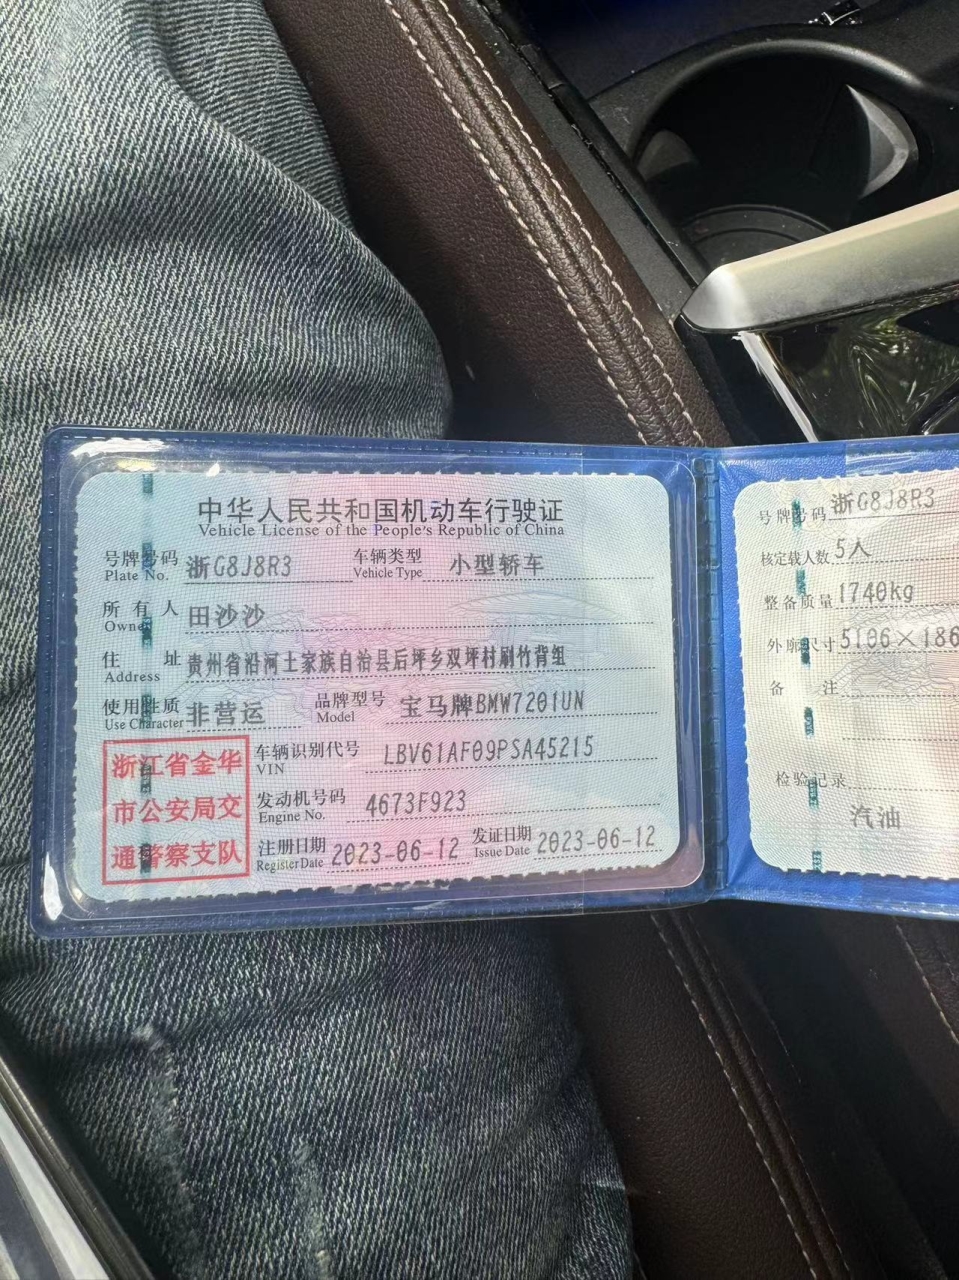 中华人民共和国机动车行驶证
Vehicle License of the People's Republic of China
号牌号码 浙G8J8R3 车辆类型 小型轿车
Plate No. Vehicle Type
所有人 田沙沙
Owner
住址 贵州省沿河土家族自治县后坪乡双坪村刷竹背组
Address
使用性质 非营运 品牌型号 宝马牌BMW7201UN
Use Character Model
浙江省金华
市公安局交
通警察支队
车辆识别代号 LBV61AF09PSA45215
VIN
发动机号码 4673F923
Engine No.
注册日期 2023-06-12 发证日期 2023-06-12
Register Date Issue Date
号牌号码 浙G8J8R3
核定载人数 5人
整备质量 1740kg
外廓尺寸 5106×186
备注
检验记录
汽油